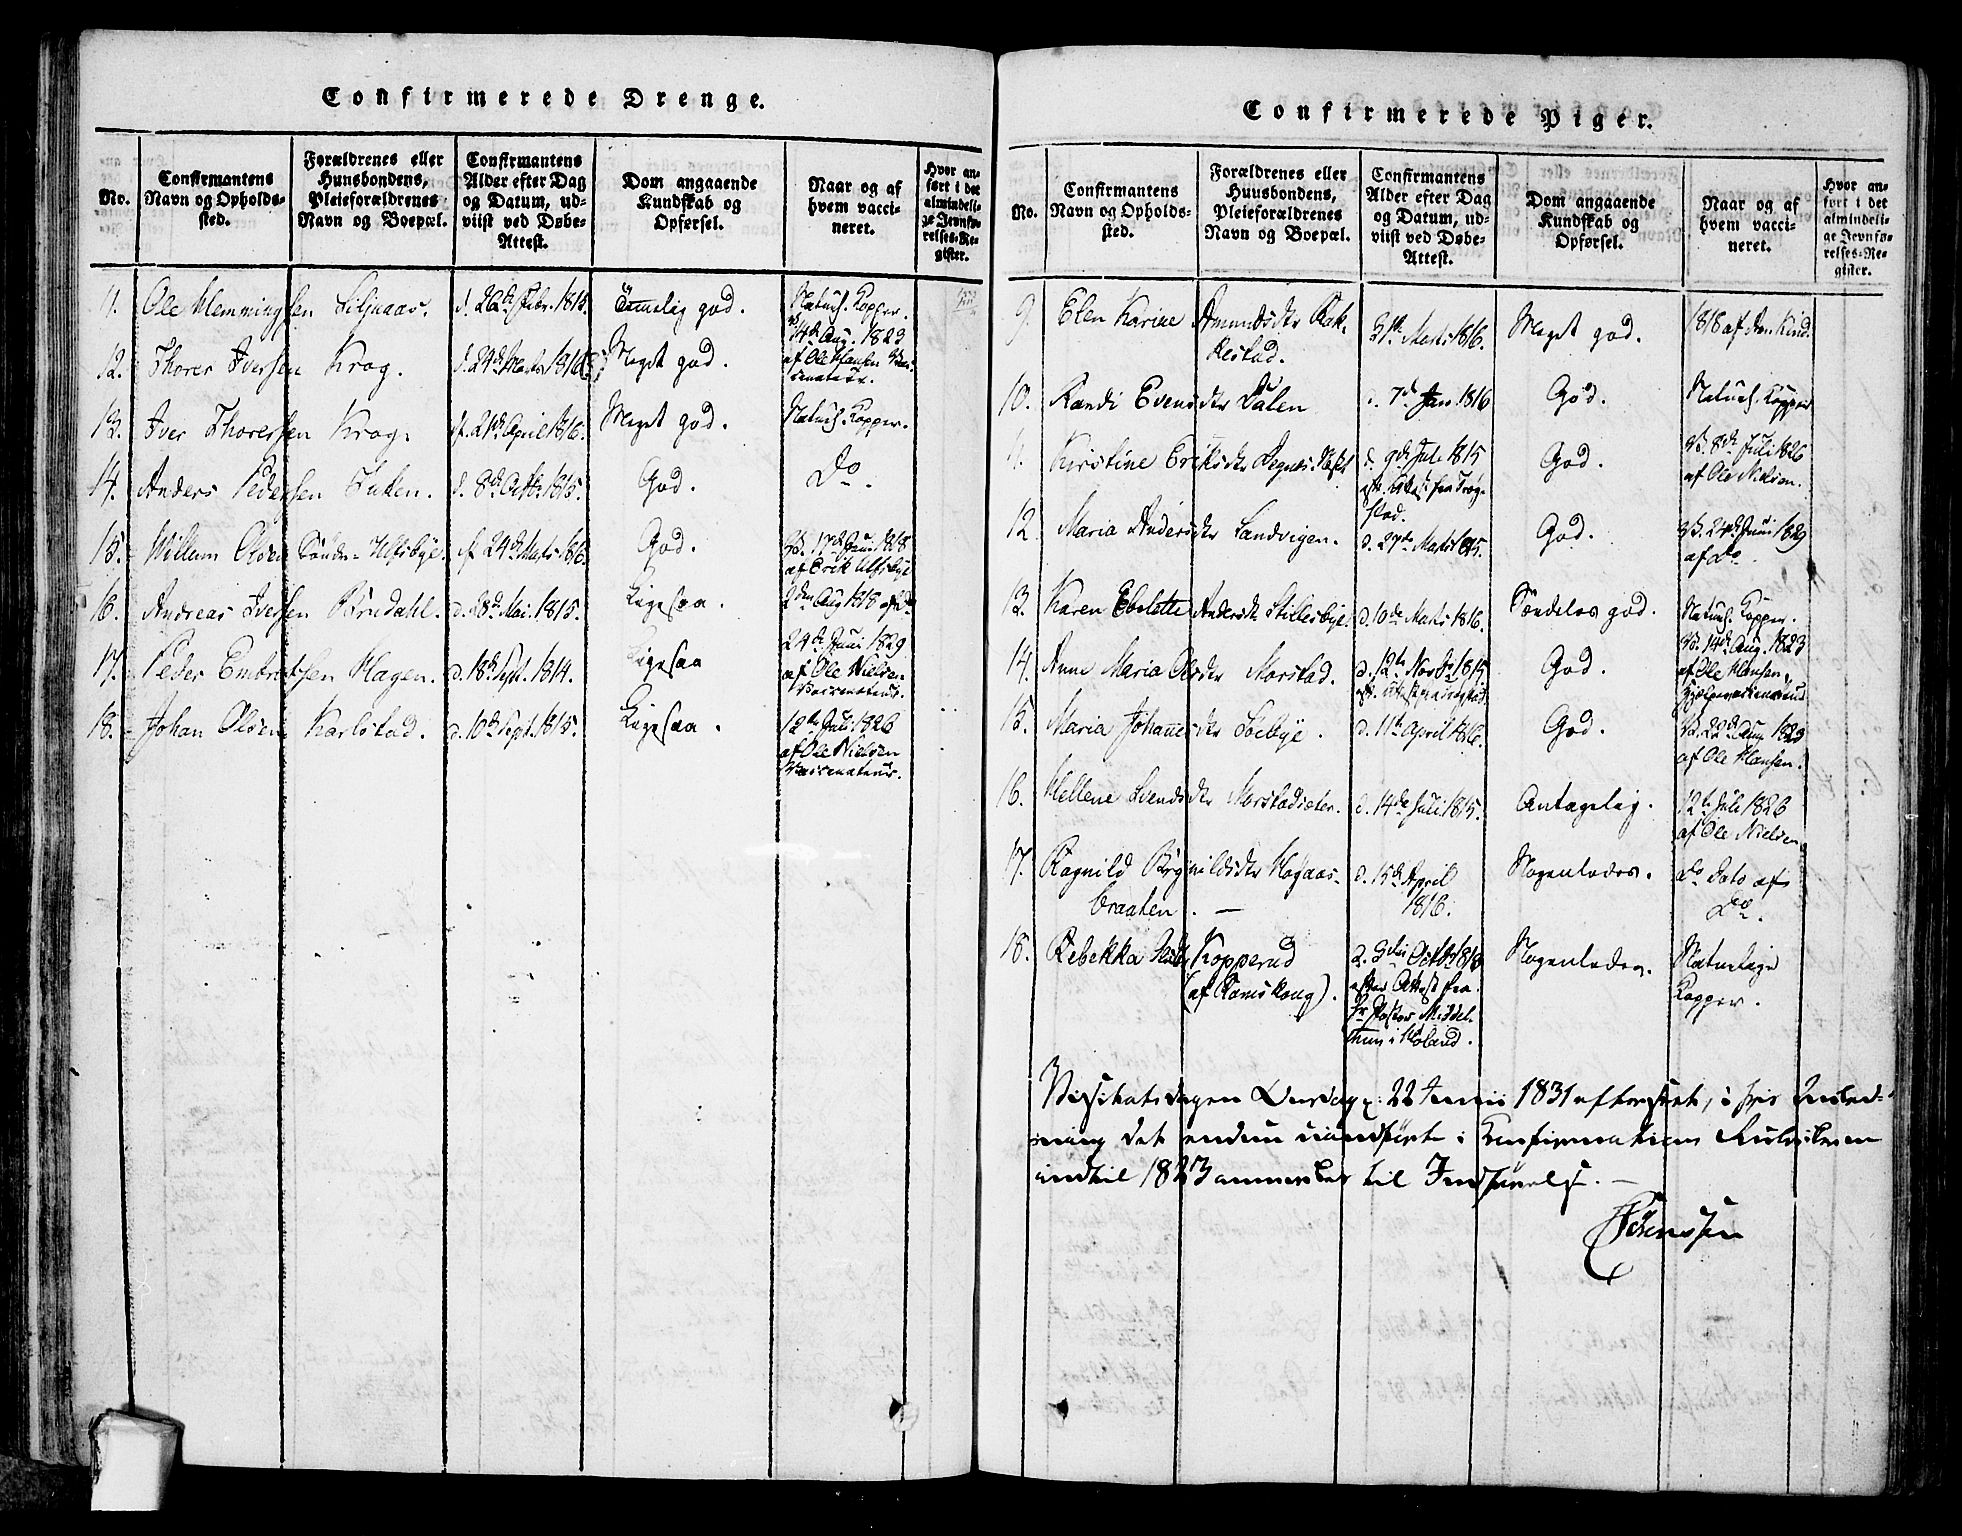 Confirmerede Drenge.
No.
Confirmantens
Navn og Opholds-
sted.
Forældrenes eller
Huusbondens,
Pleieforældrenes
Navn og Boepæl.
Confirmantens
Alder efter Dag
og Datum, ud-
viist ved Døbe-
Attest.
Dom angaaende
Kundskab og
Opførsel.
Naar og af
hvem vacci-
neret.
Hvor an-
ført i det
almindeli-
ge Jevnfø-
relses-Re-
gister.
11. Ole Hemmingsen Liljuaas. d. 26de Febr. 1815. Temelig god. Naturl. Kopper.
12. Thorer Iversen Krog. d. 24de Marts 1816. Meget god. 14de Aug. 1823
af Ole Hansen Vac-
cinateur.
13. Iver Thoresen Krog. d. 21de April 1816. Meget god. Naturl. Kopper.
14. Anders Pedersen d. 8de Octbr. 1815. God. Do.
15. Willum Olsen Søndre Ulfsbye. d. 24de Marts 1816. God. V. 17de Juni 1818
af Erik Ulfsbye
16. Andreas Iversen d. 28de Mai. 1815. Ligesaa. 2den Aug 1818 af Do
17. Peder Embretsen Hagen. d. 18de Sept. 1814. Ligesaa 24de Juni 1829
af Ole Nielsen
Vaccinateur.
18. Johan Olsen Karlstad. d. 10de Sept. 1815. Ligesaa. 12te Juli 1826
af Ole Nielsen
Vaccinateur.
Confirmerede Piger.
No.
Confirmantens
Navn og Opholds-
sted.
Forældrenes eller
Huusbondens,
Pleieforældrenes
Navn og Boepæl.
Confirmantens
Alder efter Dag
og Datum, ud-
viist ved Døbe-
Attest.
Dom angaaende
Kundskab og
Opførsel.
Naar og af
hvem vacci-
neret.
Hvor an-
ført i det
almindeli-
ge Jevnfø-
relses-Re-
gister.
9. Elen Karine Amundsdtr Rak-
kestad. 31te Marts 1816. Meget god. 1818 af
10. Randi Evensdtr Dalen d. 7de Jan 1816 God. Naturl. Kopper
11. Kirstine Eriksdtr d. 9de Juli 1815 God. V. 8de Juli 1826
Attest fra Trøg-
stad. af Ole Nielsen.
12. Maria Andersdtr Sandvigen. d. 27de Marts 1815. God. V. 24de Juni 1829
af Do.
13. Karen Andersdtr Stillesbye d. 10de Marts 1816. Særdeles god. Naturl. Kopper.
14. Anne Maria Olsdtr Morstad. d. 12te Novbr 1815. God. V. 14de Aug. 1823
af Ole Hansen,
15. Maria Johannesdtr Soebye. d. 11te April 1816. God. V. 22de Aug 1823
af Ole Hansen.
16. Hellene Svendsdtr Morstadseter. d. 14de Juli 1815. Antagelig. 12te Juli 1826
af Ole Nielsen
17. Ragnild Brynildsdtr Høgaas-
braaten. d. 15de April
1816. Nogenledes. Do Dato af
Do.
18. Rebekka Kopperud
(af Rømskoug). d. 3die Octbr
efter Attest fra
Hr Pastor Middel-
thun i Høland. Nogenledes. Naturlige
Kopper.
Visitatsdagen Onsdag d. 22 Junii 1831 efterseet, i hvis Anled-
ning det endnu uanførte i Confirmations Rubrikken
indtil 1823 anmerkes til Indførelse.
Sørenssen